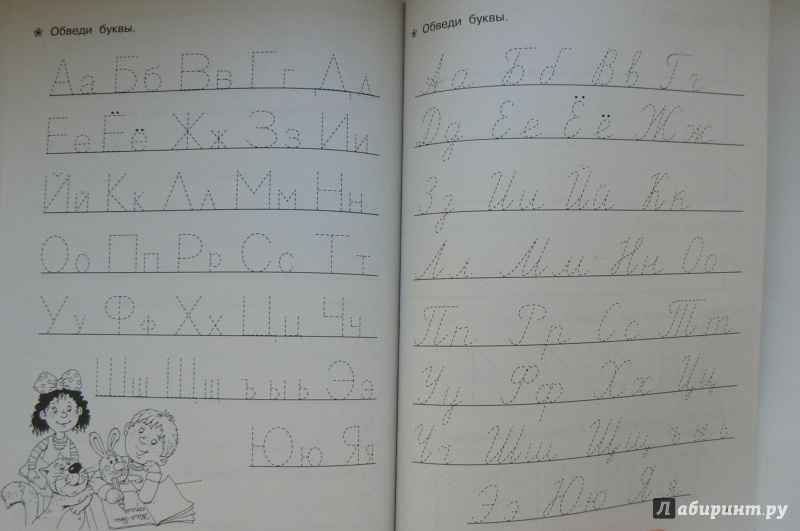 Обведи буквы.
Аа Бб Вв Гг Дд
Ее Ёё Жж Зз Ии
Йй Кк Лл Мм Нн
Оо Пп Рр Сс Тт
Уу Фф Хх Цц Чч
Шш Щщ ъыь Ээ
Юю Яя
Обведи буквы.
Аа Бб Вв Гг
Дд Ее Ёё Жж
Зз Ии Йй Кк
Лл Мм Нн Оо
Пп Рр Сс Тт
Уу Фф Хх Цц
Чч Шш Щщ ъыь
Ээ Юю Яя
Лабиринт.ру